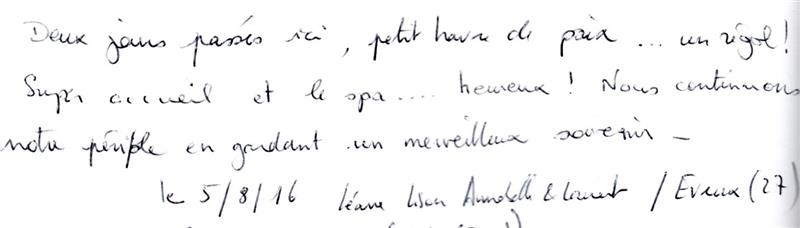 Deux jours passés ici, petit havre de paix ... un régal!
Super accueil et le spa.... heureux! Nous continuons
notre périple en gardant un merveilleux souvenir -
le 5/8/16 Léane Lison & Laurent / Evreux (27)